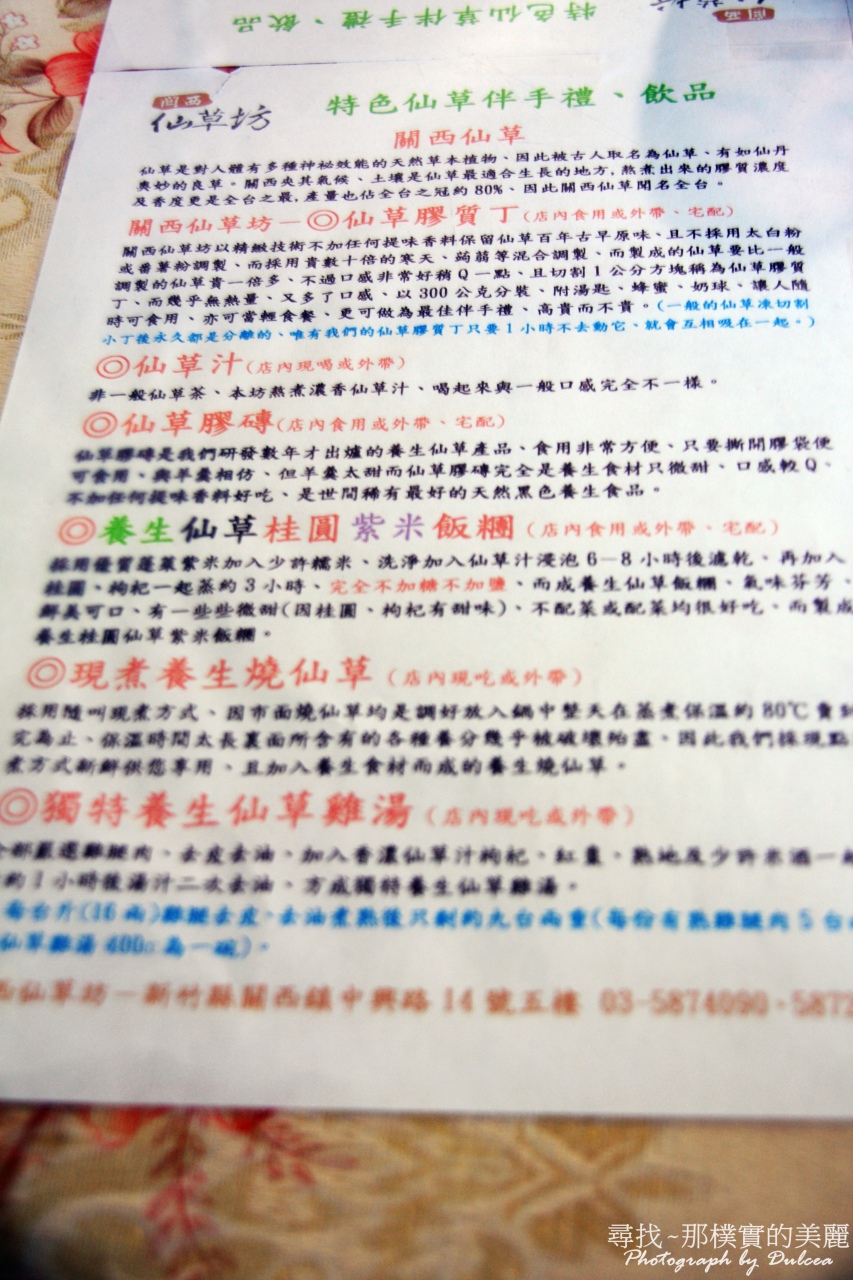 特色仙草伴手禮、飲品
關西
仙草坊
特色仙草伴手禮、飲品
關西仙草
仙草是對人體有多種神祕效能的天然草本植物、因此被古人取名為仙草、有如仙丹
奧妙的良草。關西夾其氣候、土壤是仙草最適合生長的地方,熬煮出來的膠質濃度
及香度更是全台之最,產量也佔全台之冠約80%、因此關西仙草聞名全台。
關西仙草坊－◎仙草膠質丁(店內食用或外帶、宅配)
關西仙草坊以精緻技術不加任何提味香料保留仙草百年古早原味、且不採用太白粉
或番薯粉調製、而採用貴數十倍的寒天、蒟蒻等混合調製、而製成的仙草要比一般
調製的仙草貴一倍多、不過口感非常好稍Q一點、且切割1公分方塊稱為仙草膠質
丁、而幾乎無熱量、又多了口感、以300公克分裝、附湯匙、蜂蜜、奶球、讓人隨
時可食用、亦可當輕食餐、更可做為最佳伴手禮、高貴而不貴。(一般的仙草凍切割
小丁後永久都是分離的、唯有我們的仙草膠質丁只要1小時不去動它、就會互相吸在一起。)
◎仙草汁(店內現喝或外帶)
非一般仙草茶、本坊熬煮濃香仙草汁、喝起來與一般口感完全不一樣。
◎仙草膠磚(店內食用或外帶、宅配)
仙草膠磚是我們研發數年才出爐的養生仙草產品、食用非常方便、只要撕開膠袋便
可食用、與羊羹相仿、但羊羹太甜而仙草膠磚完全是養生食材只微甜、口感較Q、
不加任何提味香料好吃、是世間稀有最好的天然黑色養生食品。
◎養生仙草桂圓紫米飯糰(店內食用或外帶、宅配)
採用優質蓬萊紫米加入少許糯米、洗淨加入仙草汁浸泡6－8小時後濾乾、再加入
桂圓、枸杞一起蒸約3小時、完全不加糖不加鹽、而成養生仙草飯糰、氣味芬芳、
鮮美可口、有一些些微甜(因桂圓、枸杞有甜味)、不配菜或配菜均很好吃、而製成
養生桂圓仙草紫米飯糰。
◎現煮養生燒仙草(店內現吃或外帶)
採用隨叫現煮方式、因市面燒仙草均是調好放入鍋中整天在蒸煮保溫約80℃賣到
完為止、保溫時間太長裏面所含有的各種養分幾乎被破壞殆盡、因此我們採現點
煮方式新鮮供您享用、且加入養生食材而成的養生燒仙草。
◎獨特養生仙草雞湯(店內現吃或外帶)
全部嚴選雞腿肉、去皮去油、加入香濃仙草汁枸杞、紅棗、熟地及少許米酒一起
約1小時後湯汁二次去油、方成獨特養生仙草雞湯。
每台斤(16兩)雞腿去皮、去油煮熟後只剩約九台兩重(每份有熟雞腿肉5台
仙草雞湯400㏄為一碗)。
西仙草坊－新竹縣關西鎮中興路14號五樓 03-5874090、5872
尋找~那樸實的美麗
Photograph by Dulcea